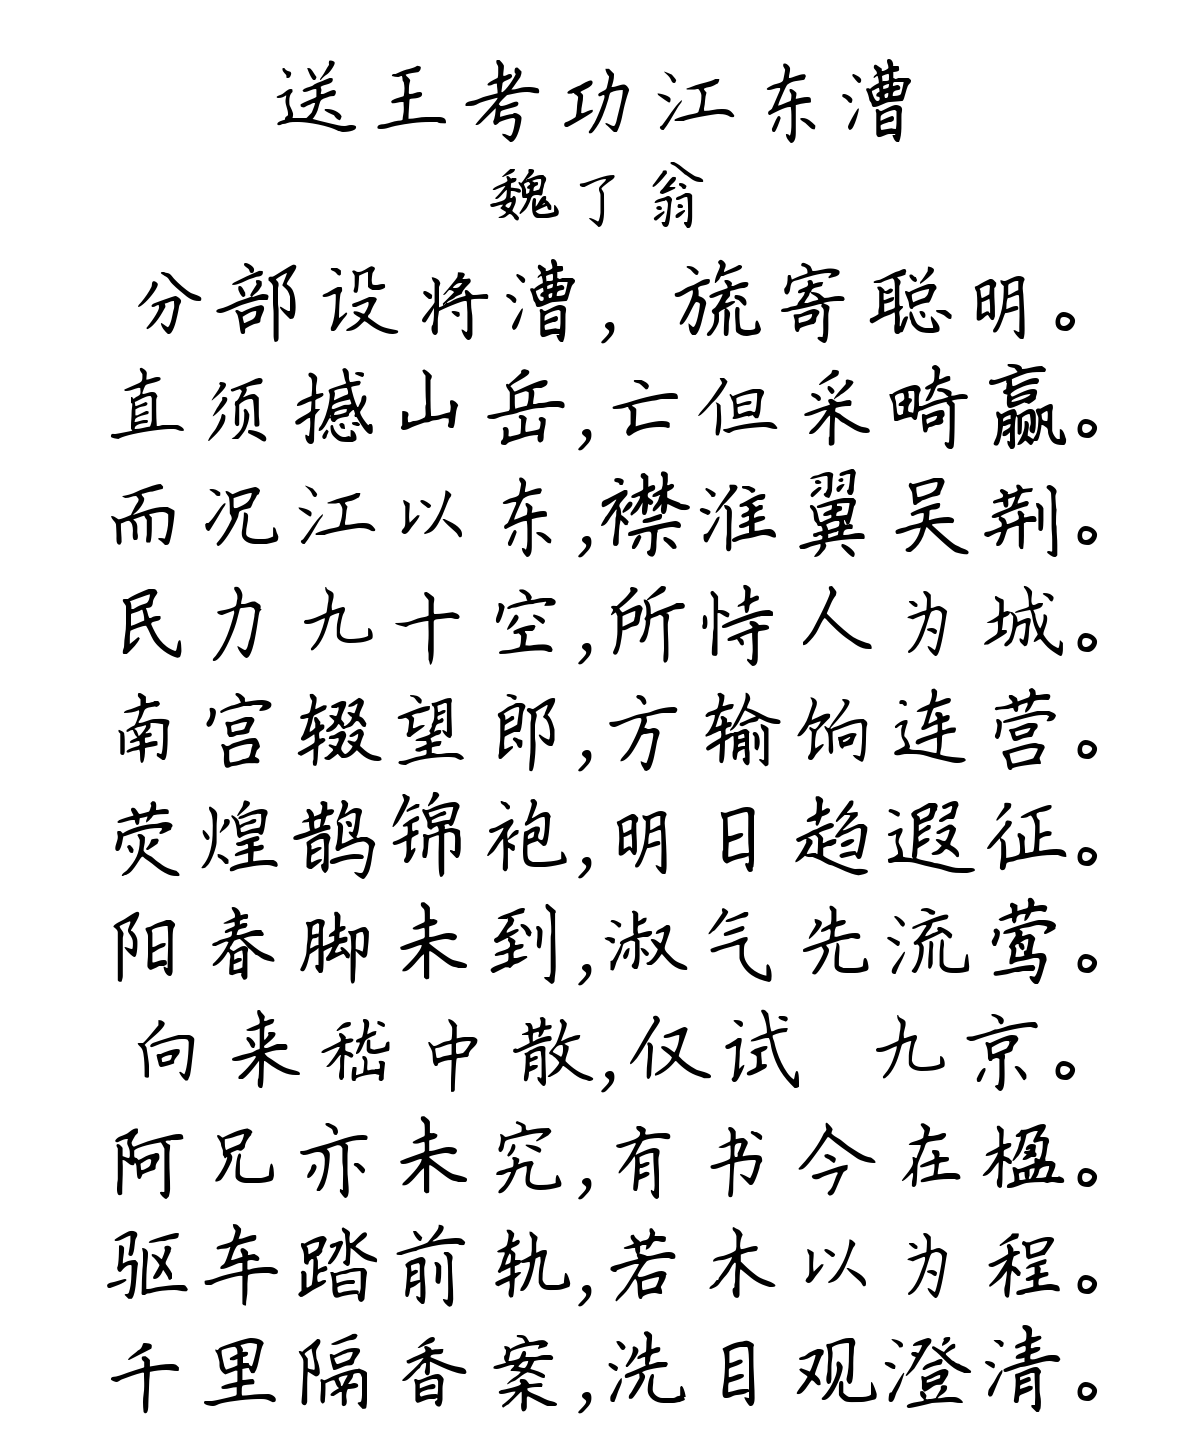 送王考功江东漕
魏了翁
分部设将漕，旒寄聪明。
直须撼山岳，亡但采畸赢。
而况江以东，襟淮翼吴荆。
民力九十空，所恃人为城。
南宫辍望郎，方输饷连营。
荧煌鹊锦袍，明日趋遐征。
阳春脚未到，淑气先流莺。
向来嵇中散，仅试 九京。
阿兄亦未究，有书今在楹。
驱车踏前轨，若木以为程。
千里隔香案，洗目观澄清。